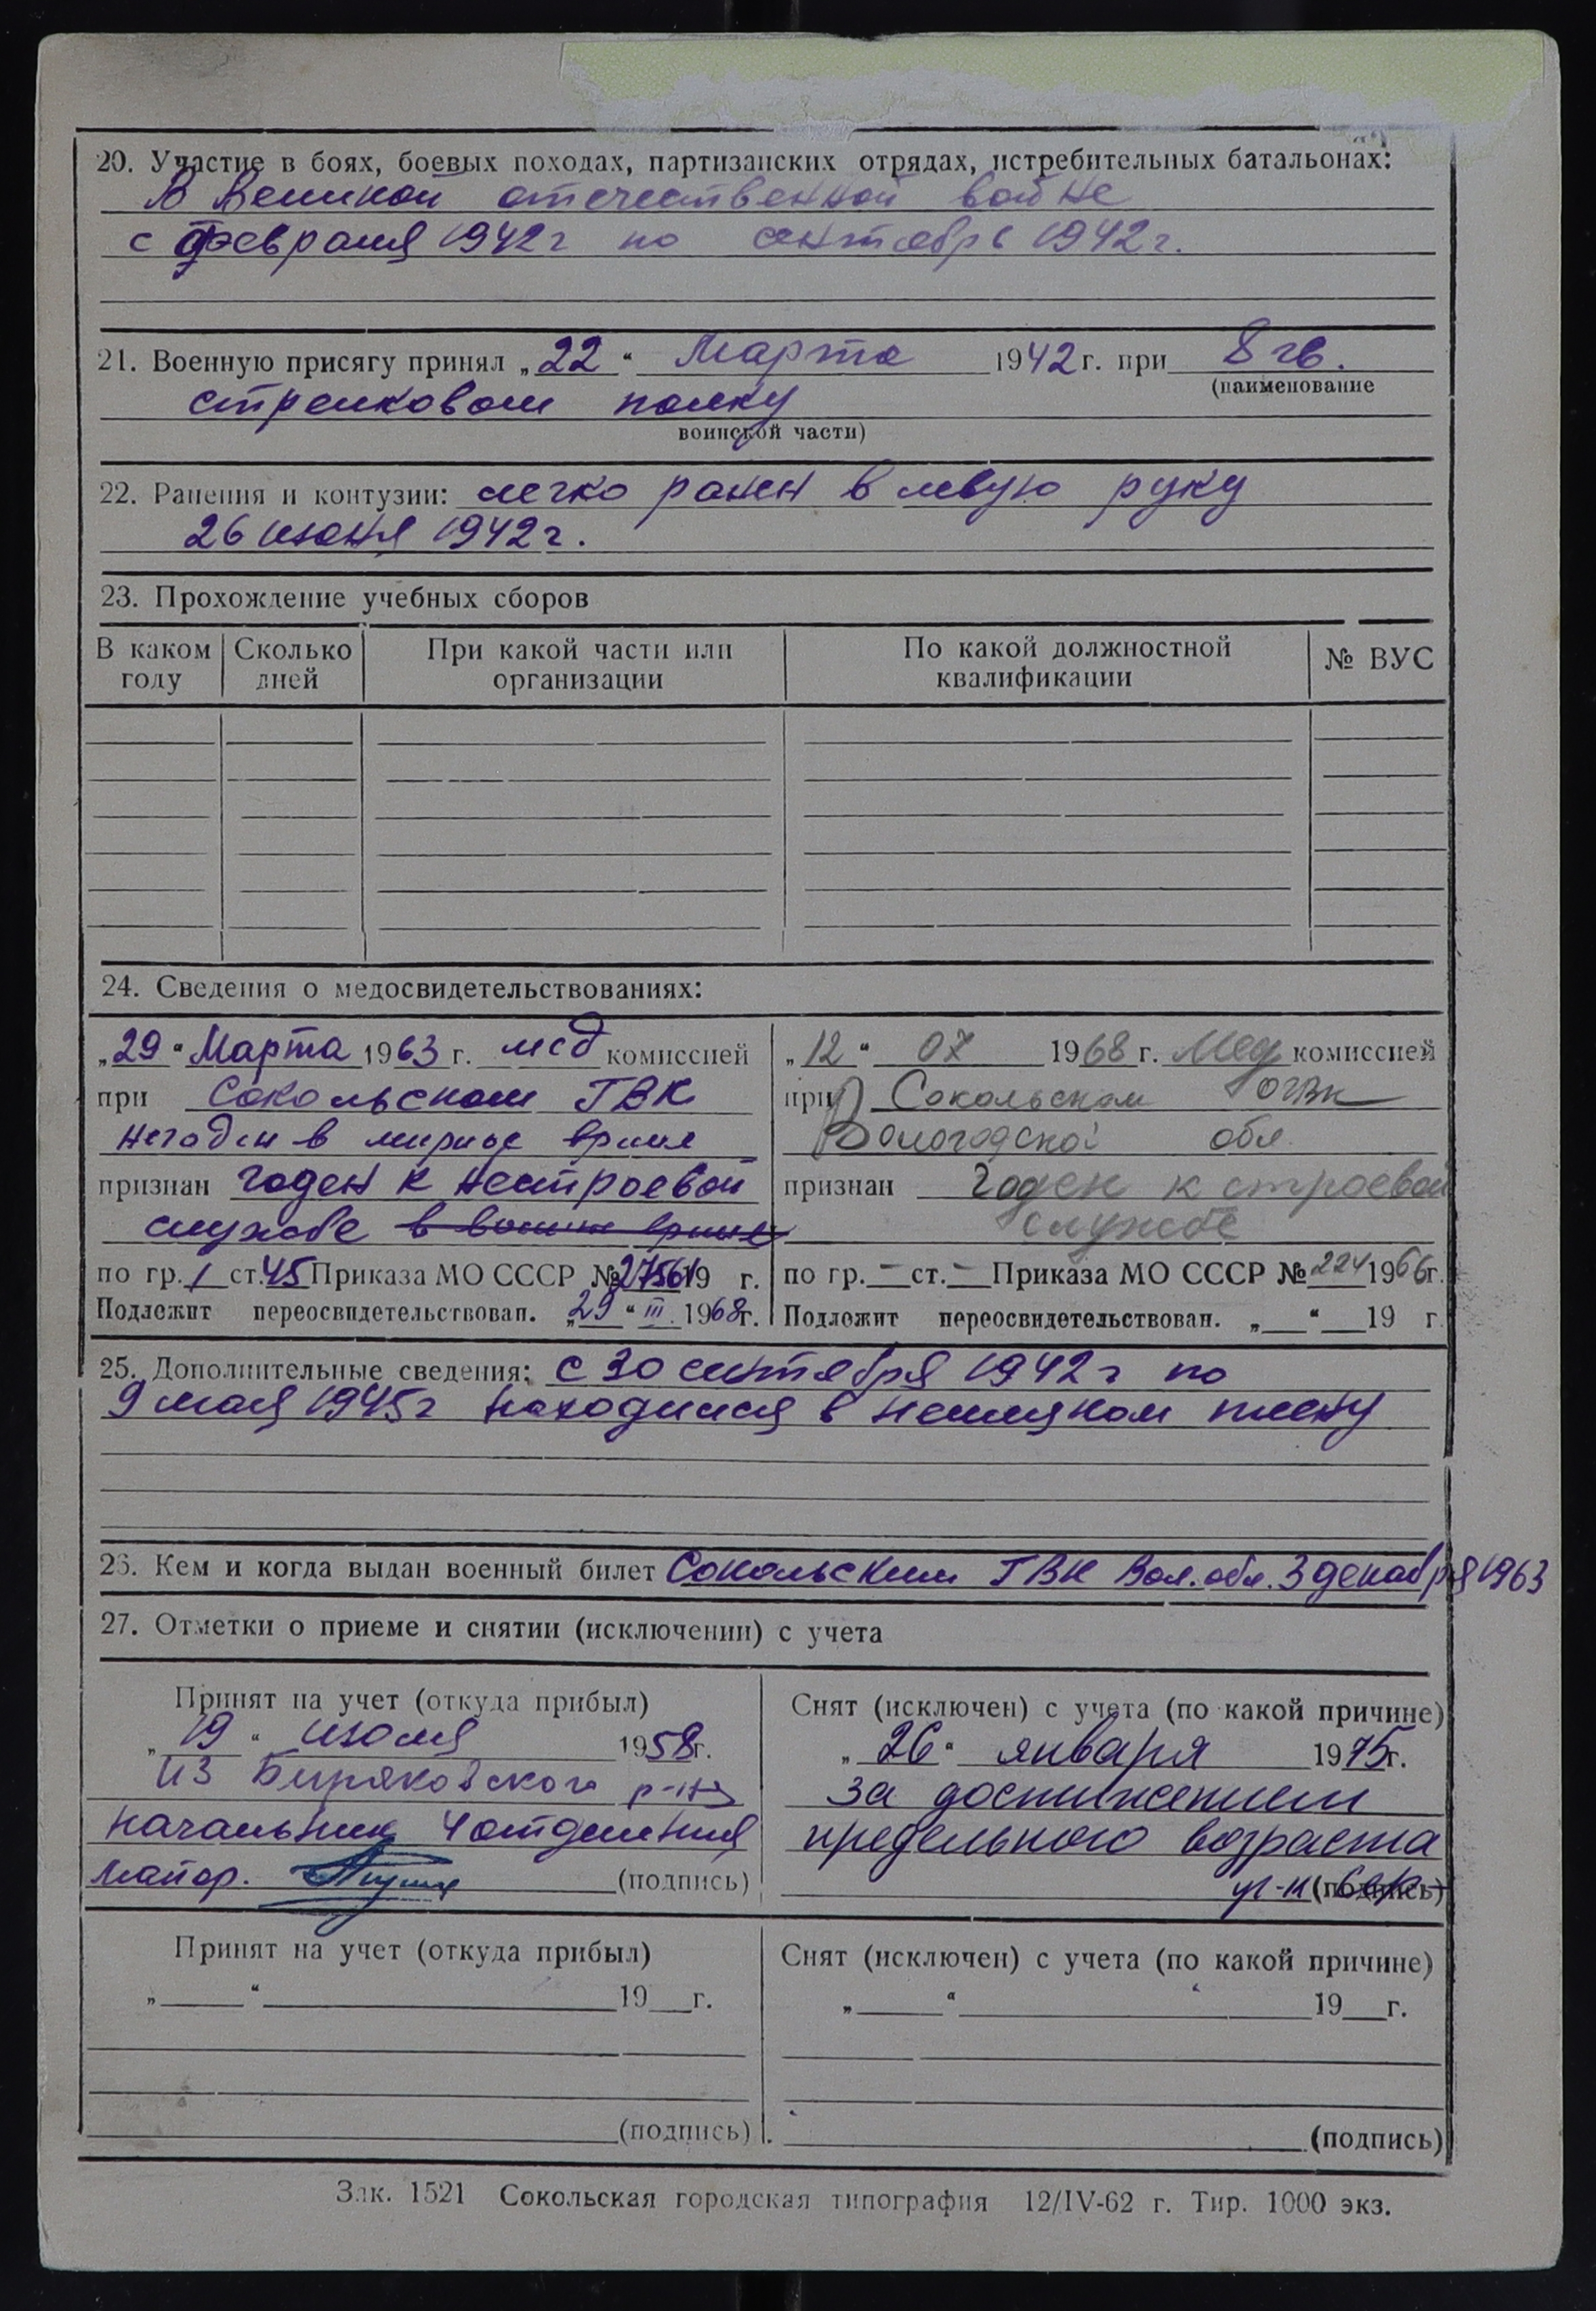 20. Участие в боях, боевых походах, партизанских отрядах, истребительных батальонах:
В Великой отечественной войне
с февраля 1942г по сентябрь 1942г.
21. Военную присягу принял „22“ Марта 1942 г. при 8 гв.
(наименование
стрелковом полку
воинской части)
22. Ранения и контузии: легко ранен в левую руку
26 июня 1942г.
23. Прохождение учебных сборов
В каком году | Сколько дней | При какой части или организации | По какой должностной квалификации | № ВУС
24. Сведения о медосвидетельствованиях:
„29“ Марта 1963 г. мед комиссией
при Сокольском ГВК
негоден в мирное время
признан годен к нестроевой
службе в военное время
по гр. 1 ст. 45 Приказа МО СССР № 19 г.
Подлежит переосвидетельствован. „29“ III 1968г.
„12“ 07 1968 г. Мед комиссией
при Сокольском ОГВК
Вологодской обл.
признан годен к строевой
службе
по гр. — ст. — Приказа МО СССР № 224 1966г.
Подлежит переосвидетельствован. „ “ 19 г.
25. Дополнительные сведения: с 30 сентября 1942 г по
9 мая 1945г находился в немецком плену
26. Кем и когда выдан военный билет Сокольским ГВК Вол. обл. 3 декабря 1963
27. Отметки о приеме и снятии (исключении) с учета
Принят на учет (откуда прибыл)
„19“ июля 1958г.
из Биряковского р-на
начальник 4 отделения
майор. (подпись)
Снят (исключен) с учета (по какой причине)
„26“ января 1975г.
за достижением
предельного возраста
(подпись)
Принят на учет (откуда прибыл)
„ “ 19 г.
(подпись)
Снят (исключен) с учета (по какой причине)
„ “ 19 г.
(подпись)
Зак. 1521 Сокольская городская типография 12/IV-62 г. Тир. 1000 экз.